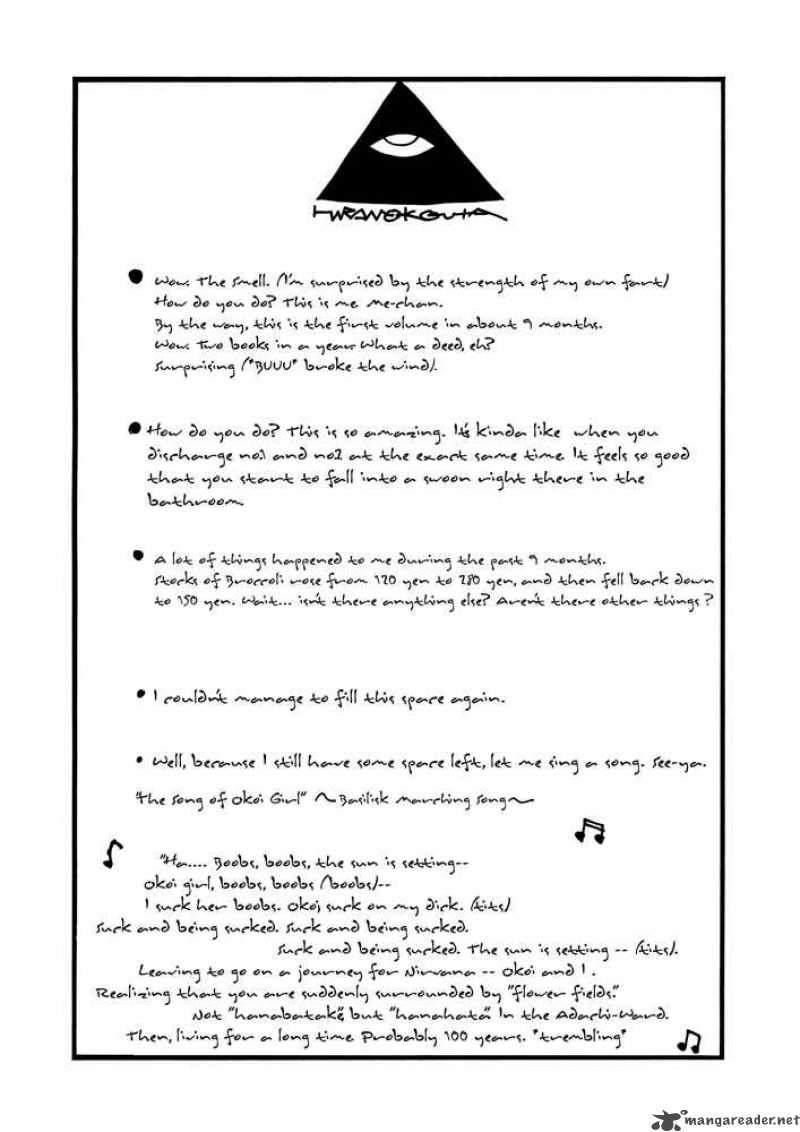 HIRANOKOUTA
● Wow. The smell. (I'm surprised by the strength of my own fart)
How do you do? This is me me-chan.
By the way, this is the first volume in about 9 months.
Wow. Two books in a year. What a deed, eh?
Surprising ("BUUU" broke the wind).
● How do you do? This is so amazing. It's kinda like when you
discharge no.1 and no.2 at the exact same time. It feels so good
that you start to fall into a swoon right there in the
bathroom.
● A lot of things happened to me during the past 9 months.
Stocks of Broccoli rose from 120 yen to 280 yen, and then fell back down
to 150 yen. Wait... isn't there anything else? Aren't there other things?
● I couldn't manage to fill this space again.
● Well, because I still have some space left, let me sing a song. See-ya.
"The Song of Okoi Girl" ~Basilisk Marching Song~
"Ha.... Boobs, boobs, the sun is setting--
Okoi girl, boobs, boobs (boobs)--
I suck her boobs. Okoi, suck on my dick. (tits)
Suck and being sucked. Suck and being sucked.
Suck and being sucked. The sun is setting -- (tits).
Leaving to go on a journey for Nirvana -- Okoi and I.
Realizing that you are suddenly surrounded by "flower fields."
Not "hanabatake", but "hanahata". In the Adachi-Ward.
Then, living for a long time. Probably 100 years. *trembling*
mangareader.net